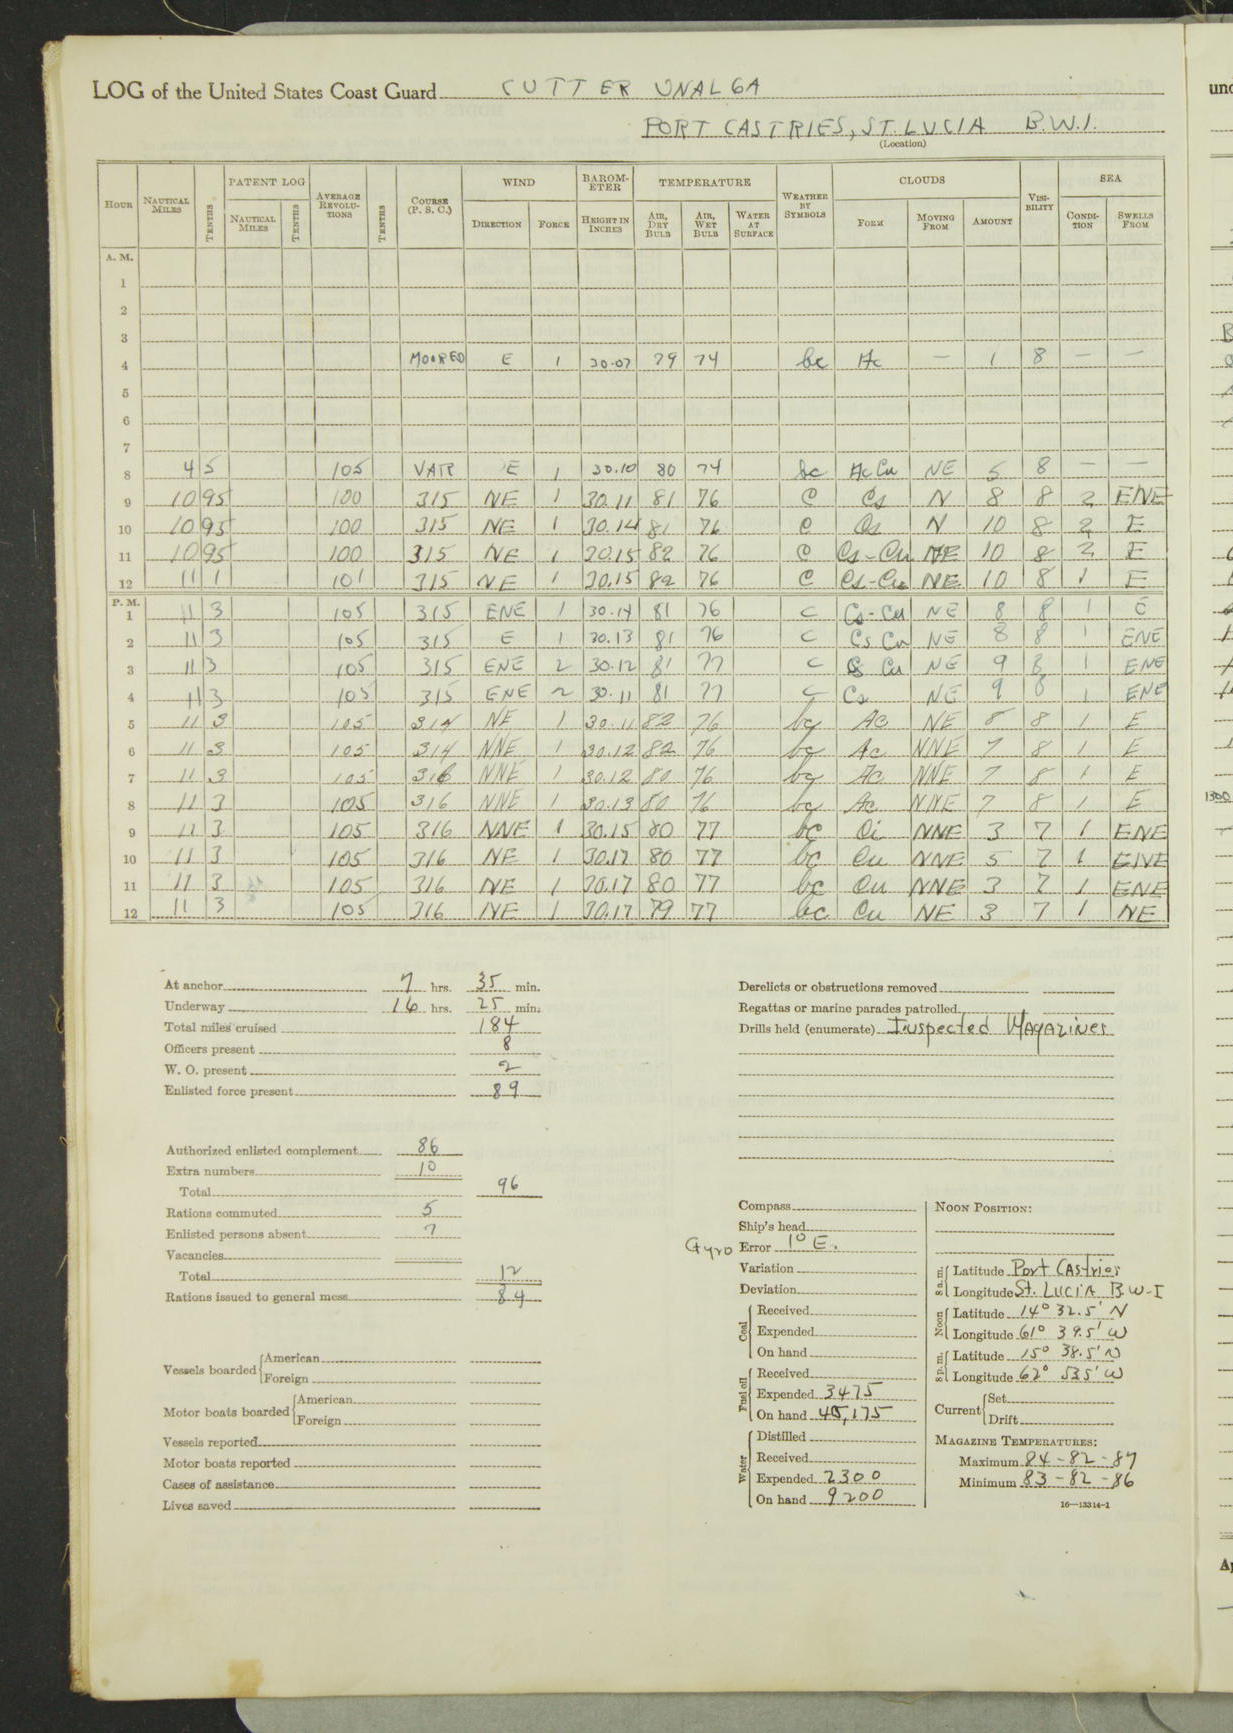 LOG of the United States Coast Guard CUTTER UNALGA
PORT CASTRIES, ST. LUCIA B.W.I.
(Location)
HOUR NAUTICAL MILES TENTHS PATENT LOG NAUTICAL MILES TENTHS AVERAGE REVOLUTIONS TENTHS COURSE (P. S. C.) WIND DIRECTION FORCE BAROMETER HEIGHT IN INCHES TEMPERATURE AIR, DRY BULB AIR, WET BULB WATER AT SURFACE WEATHER BY SYMBOLS CLOUDS FORM MOVING FROM AMOUNT VISIBILITY SEA CONDITION SWELLS FROM
A. M.
1
2
3
4 MOORED E 1 30.07 79 74 bc Ac — 1 8 — —
5
6
7
8 4 5 105 VAR E 1 30.10 80 74 bc Ac Cu NE 5 8 — —
9 10 95 100 315 NE 1 30.11 81 76 C Cs N 8 8 2 ENE
10 10 95 100 315 NE 1 30.14 81 76 C Cs N 10 8 2 E
11 10 95 100 315 NE 1 30.15 82 76 C Cs-Cu NE 10 8 2 E
12 11 1 101 315 NE 1 30.15 82 76 C Cs-Cu NE 10 8 1 E
P. M.
1 11 3 105 315 ENE 1 30.14 81 76 C Cs-Cu NE 8 8 1 E
2 11 3 105 315 E 1 30.13 81 76 C Cs Cu NE 8 8 1 ENE
3 11 3 105 315 ENE 2 30.12 81 77 C Cs Cu NE 9 8 1 ENE
4 11 3 105 315 ENE 2 30.11 81 77 C Cs NE 9 8 1 ENE
5 11 3 105 314 NE 1 30.11 82 76 bc AC NE 8 8 1 E
6 11 3 105 314 NNE 1 30.12 82 76 bc Ac NNE 7 8 1 E
7 11 3 105 316 NNE 1 30.12 80 76 bc Ac NNE 7 8 1 E
8 11 3 105 316 NNE 1 30.13 80 76 bc Ac NNE 7 8 1 E
9 11 3 105 316 NNE 1 30.15 80 77 bc Ci NNE 3 7 1 ENE
10 11 3 105 316 NE 1 30.17 80 77 bc Cu NNE 5 7 1 ENE
11 11 3 105 316 NE 1 30.17 80 77 bc Cu NNE 3 7 1 ENE
12 11 3 105 316 NE 1 30.17 79 77 bc Cu NE 3 7 1 NE
At anchor 7 hrs. 35 min.
Underway 16 hrs. 25 min.
Total miles cruised 184
Officers present 8
W. O. present 2
Enlisted force present 89
Authorized enlisted complement 86
Extra numbers 10
Total 96
Rations commuted 5
Enlisted persons absent 7
Vacancies
Total 12
Rations issued to general mess 84
Vessels boarded American
Foreign
Motor boats boarded American
Foreign
Vessels reported
Motor boats reported
Cases of assistance
Lives saved
Derelicts or obstructions removed
Regattas or marine parades patrolled
Drills held (enumerate) Inspected Magazines
Compass
Ship's head
Gyro Error 1° E.
Variation
Deviation
Coal Received
Expended
On hand
Fuel oil Received
Expended 3475
On hand 45,175
Water Distilled
Received
Expended 2300
On hand 9200
NOON POSITION:
8 a.m. Latitude Port Castries
Longitude St. LUCIA B.W.I
Noon Latitude 14° 32.5' N
Longitude 61° 39.5' W
8 p.m. Latitude 15° 38.5' N
Longitude 62° 53.5' W
Current Set
Drift
MAGAZINE TEMPERATURES:
Maximum 84-82-87
Minimum 83-82-86
16—13314-1